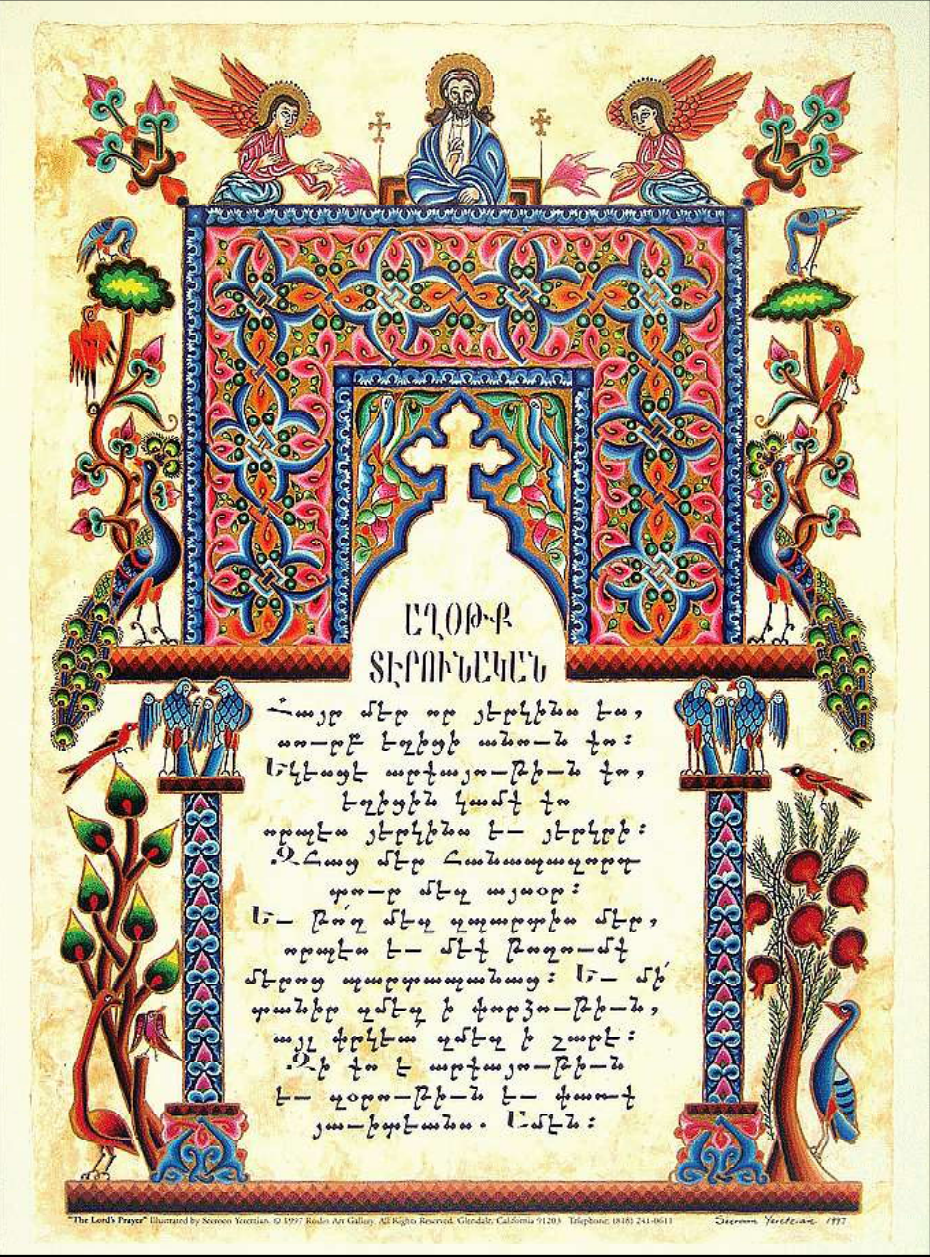 ԱՂՕԹՔ
ՏԷՐՈՒՆԱԿԱՆ
Հայր մեր որ յերկինս ես,
սուրբ եղիցի անուն քո։
Եկեսցէ արքայութիւն քո,
եղիցին կամք քո
որպէս յերկինս եւ յերկրի։
ԶՀաց մեր հանապազորդ
տուր մեզ այսօր։
Եւ թո՛ղ մեզ զպարտիս մեր,
որպէս եւ մեք թողումք
մերոց պարտապանաց։ Եւ մի՛
տանիր զմեզ ի փորձութիւն,
այլ փրկեա զմեզ ի չարէ։
Զի քո է արքայութիւն
եւ զօրութիւն եւ փառք
յաւիտեանս. Ամէն։
"The Lord's Prayer" Illustrated by Seeroon Yeretzian. © 1997 Roslin Art Gallery. All Rights Reserved. Glendale, California 91203 Telephone: (818) 241-0611
Seeroon Yeretzian 1997